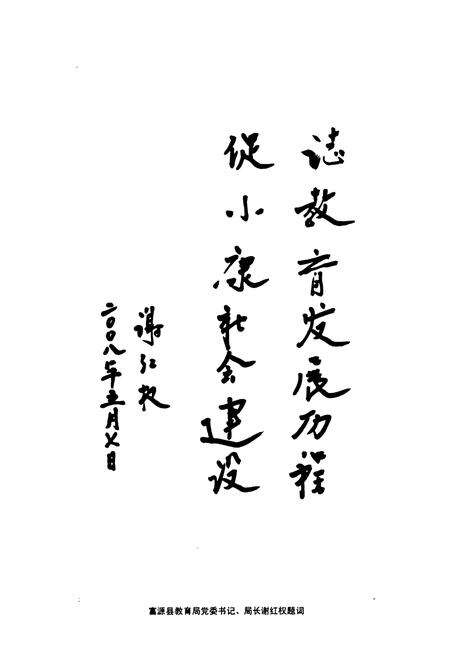 誌教育发展历程
促小康社会建设
谢红权
二〇〇八年五月七日
富源县教育局党委书记、局长谢红权题词